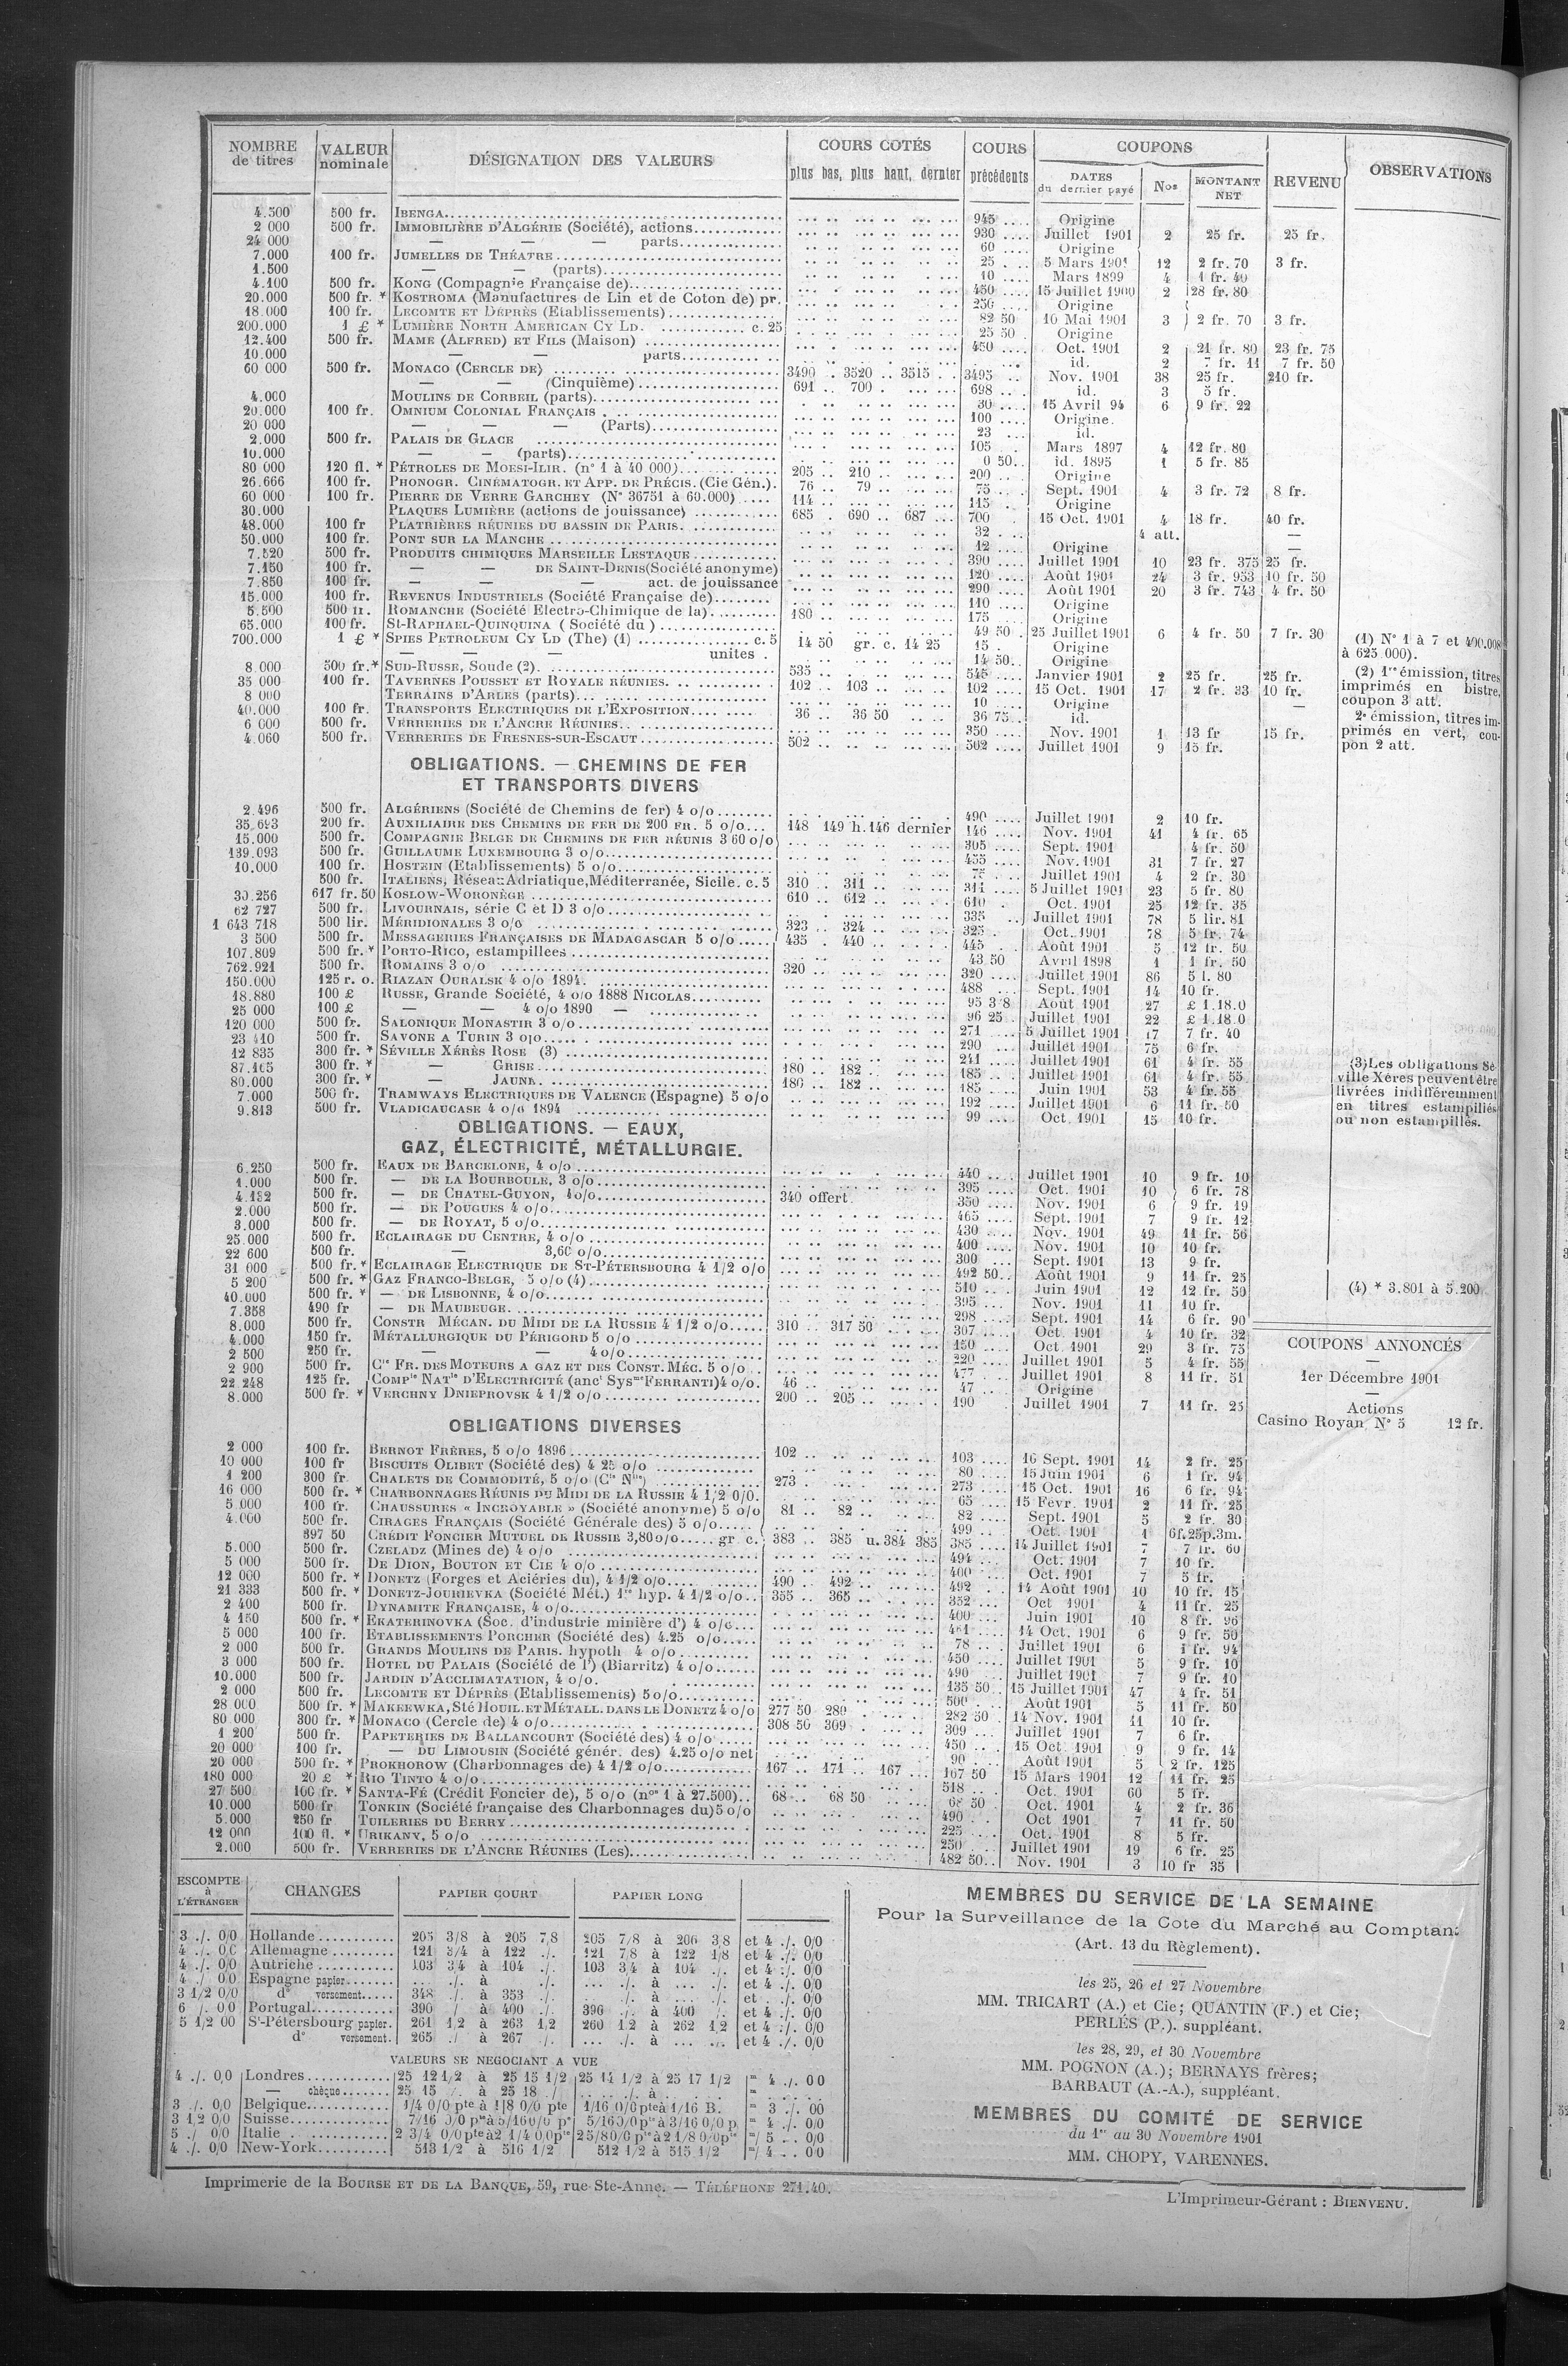 NOMBRE de titres | VALEUR nominale | DÉSIGNATION DES VALEURS | COURS COTÉS plus bas, plus haut, dernier | COURS précédents | COUPONS DATES du dernier payé | Nos | MONTANT NET | REVENU | OBSERVATIONS
4.500 500 fr. IBENGA 945 Origine
2 000 500 fr. IMMOBILIÈRE D'ALGÉRIE (Société), actions 930 Juillet 1901 2 25 fr. 25 fr.
24 000 — — — parts 60 Origine
7.000 100 fr. JUMELLES DE THÉATRE 25 5 Mars 1901 12 2 fr. 70 3 fr.
1.500 — — (parts) 10 Mars 1899 4 1 fr. 40
4.100 500 fr. KONG (Compagnie Française de) 450 15 Juillet 1900 2 28 fr. 80
20.000 500 fr. * KOSTROMA (Manufactures de Lin et de Coton de) pr. 250 Origine
18.000 100 fr. LECOMTE ET DÉPRÈS (Etablissements) 82 50 10 Mai 1901 3 2 fr. 70 3 fr.
200.000 1 £ * LUMIÈRE NORTH AMERICAN CY LD. c. 25 25 50 Origine
12.400 500 fr. MAME (ALFRED) ET FILS (Maison) 450 Oct. 1901 2 21 fr. 80 23 fr. 75
10.000 — — parts id. 2 7 fr. 11 7 fr. 50
60 000 500 fr. MONACO (CERCLE DE) 3490 3520 3515 3495 Nov. 1901 38 25 fr. 210 fr.
— — (Cinquième) 691 700 698 id. 3 5 fr.
4.000 MOULINS DE CORBEIL (parts) 30 15 Avril 94 6 9 fr. 22
20.000 100 fr. OMNIUM COLONIAL FRANÇAIS 100 Origine.
20 000 — — — (Parts) 23 id.
2.000 500 fr. PALAIS DE GLACE 105 Mars 1897 4 12 fr. 80
10.000 — — (parts) 0 50 id. 1895 1 5 fr. 85
80 000 120 fl. * PÉTROLES DE MOESI-ILIR. (n° 1 à 40 000) 205 210 200 Origine
26.666 100 fr. PHONOGR. CINÉMATOGR. ET APP. DE PRÉCIS. (Cie Gén.). 76 79 75 Sept. 1901 4 3 fr. 72 8 fr.
60 000 100 fr. PIERRE DE VERRE GARCHEY (N° 36751 à 60.000) 114 115 Origine
30.000 PLAQUES LUMIÈRE (actions de jouissance) 685 690 687 700 15 Oct. 1901 4 18 fr. 40 fr.
48.000 100 fr PLATRIÈRES RÉUNIES DU BASSIN DE PARIS. 32 4 att. —
50.000 100 fr. PONT SUR LA MANCHE 12 Origine —
7.520 500 fr. PRODUITS CHIMIQUES MARSEILLE LESTAQUE 390 Juillet 1901 10 23 fr. 375 25 fr.
7.150 100 fr. — — DE SAINT-DENIS (Société anonyme) 120 Août 1901 24 3 fr. 953 10 fr. 50
7.850 100 fr. — — — act. de jouissance 290 Août 1901 20 3 fr. 743 4 fr. 50
15.000 100 fr. REVENUS INDUSTRIELS (Société Française de) 110 Origine
5.500 500 fr. ROMANCHE (Société Electro-Chimique de la) 180 175 Origine
65.000 100 fr. St-RAPHAEL-QUINQUINA (Société du) 49 50 25 Juillet 1901 6 4 fr. 50 7 fr. 30
700.000 1 £ * SPIES PETROLEUM CY LD (The) (1) c. 5 14 50 gr. c. 14 25 15 Origine
— — — unites 14 50 Origine
8.000 500 fr. * SUD-RUSSE, Soude (2). 535 545 Janvier 1901 2 25 fr. 25 fr.
35 000 100 fr. TAVERNES POUSSET ET ROYALE RÉUNIES. 102 103 102 15 Oct. 1901 17 2 fr. 33 10 fr.
8 000 TERRAINS D'ARLES (parts) 10 Origine
40.000 100 fr. TRANSPORTS ELECTRIQUES DE L'EXPOSITION 36 36 50 36 75 id. —
6 000 500 fr. VERRERIES DE L'ANCRE RÉUNIES 350 Nov. 1901 1 13 fr 15 fr.
4.060 500 fr. VERRERIES DE FRESNES-SUR-ESCAUT 502 502 Juillet 1901 9 15 fr.
(1) N° 1 à 7 et 400.008 à 625 000).
(2) 1re émission, titres imprimés en bistre, coupon 3 att.
2e émission, titres imprimés en vert, coupon 2 att.
OBLIGATIONS. — CHEMINS DE FER
ET TRANSPORTS DIVERS
2.496 500 fr. ALGÉRIENS (Société de Chemins de fer) 4 o/o 490 Juillet 1901 2 10 fr.
35.693 200 fr. AUXILIAIRE DES CHEMINS DE FER DE 200 FR. 5 o/o 148 149 h. 146 dernier 146 Nov. 1901 41 4 fr. 65
15.000 500 fr. COMPAGNIE BELGE DE CHEMINS DE FER RÉUNIS 3 60 o/o 305 Sept. 1901 4 fr. 50
139.093 500 fr. GUILLAUME LUXEMBOURG 3 o/o 455 Nov. 1901 31 7 fr. 27
10.000 100 fr. HOSTEIN (Etablissements) 5 o/o 75 Juillet 1901 4 2 fr. 30
500 fr. ITALIENS, Réseau Adriatique, Méditerranée, Sicile. c. 5 310 311 311 5 Juillet 1901 23 5 fr. 80
30.256 617 fr. 50 KOSLOW-WORONÈGE 610 612 610 Oct. 1901 25 12 fr. 35
62 727 500 fr. LIVOURNAIS, série C et D 3 o/o 335 Juillet 1901 78 5 lir. 81
1 643 718 500 lir. MÉRIDIONALES 3 o/o 323 324 325 Oct. 1901 78 5 fr. 74
3 500 500 fr. MESSAGERIES FRANÇAISES DE MADAGASCAR 5 o/o 435 440 445 Août 1901 5 12 fr. 50
107.809 500 fr. * PORTO-RICO, estampillees 43 50 Avril 1898 1 1 fr. 50
762.921 500 fr. ROMAINS 3 o/o 320 320 Juillet 1901 86 5 l. 80
150.000 125 r. o. RIAZAN OURALSK 4 o/o 1894. 488 Sept. 1901 14 10 fr.
18.880 100 £ RUSSE, Grande Société, 4 o/o 1888 NICOLAS 95 3 8 Août 1901 27 £ 1.18.0
25 000 100 £ — — 4 o/o 1890 — 96 25 Juillet 1901 22 £ 1.18.0
120 000 500 fr. SALONIQUE MONASTIR 3 o/o 271 5 Juillet 1901 17 7 fr. 40
23 410 500 fr. SAVONE A TURIN 3 o/o 290 Juillet 1901 75 6 fr.
12 835 300 fr. * SÉVILLE XÉRÈS ROSE (3) 241 Juillet 1901 61 4 fr. 55
87.165 300 fr. * — GRISE 180 182 185 Juillet 1901 61 4 fr. 55
80.000 300 fr. * — JAUNE 180 182 185 Juin 1901 53 4 fr. 55
7.000 500 fr. TRAMWAYS ELECTRIQUES DE VALENCE (Espagne) 5 o/o 192 Juillet 1901 6 11 fr. 50
9.813 500 fr. VLADICAUCASE 4 o/o 1894 99 Oct. 1901 15 10 fr.
(3) Les obligations Séville Xérès peuvent être livrées indifféremment en titres estampillés ou non estampillés.
OBLIGATIONS. — EAUX,
GAZ, ÉLECTRICITÉ, MÉTALLURGIE.
6.250 500 fr. EAUX DE BARCELONE, 4 o/o 440 Juillet 1901 10 9 fr. 10
1.000 500 fr. — DE LA BOURBOULE, 3 o/o 395 Oct. 1901 10 6 fr. 78
4.132 500 fr. — DE CHATEL-GUYON, 4 o/o 340 offert. 350 Nov. 1901 6 9 fr. 19
2.000 500 fr. — DE POUGUES 4 o/o 465 Sept. 1901 7 9 fr. 12
3.000 500 fr. — DE ROYAT, 5 o/o 430 Nov. 1901 49 11 fr. 56
25.000 500 fr. ECLAIRAGE DU CENTRE, 4 o/o 400 Nov. 1901 10 10 fr.
22 600 500 fr. — 3,60 o/o 300 Sept. 1901 13 9 fr.
31 000 500 fr. * ECLAIRAGE ELECTRIQUE DE ST-PÉTERSBOURG 4 1/2 o/o 492 50 Août 1901 9 11 fr. 25
5 200 500 fr. * GAZ FRANCO-BELGE, 5 o/o (4) 510 Juin 1901 12 12 fr. 50
40.000 500 fr. * — DE LISBONNE, 4 o/o 395 Nov. 1901 11 10 fr.
7.358 490 fr — DE MAUBEUGE. 298 Sept. 1901 14 6 fr. 90
8.000 500 fr. CONSTR MÉCAN. DU MIDI DE LA RUSSIE 4 1/2 o/o 310 317 50 307 Oct. 1901 4 10 fr. 32
4.000 150 fr. MÉTALLURGIQUE DU PÉRIGORD 5 o/o 150 Oct. 1901 29 3 fr. 75
2 500 250 fr. — — 4 o/o 220 Juillet 1901 5 4 fr. 55
2 900 500 fr. Cie FR. DES MOTEURS A GAZ ET DES CONST. MÉC. 5 o/o 477 Juillet 1901 8 11 fr. 51
22 248 125 fr. COMPie NATle D'ELECTRICITÉ (anct Sysme FERRANTI) 4 o/o. 46 47 Origine
8.000 500 fr. * VERCHNY DNIEPROVSK 4 1/2 o/o 200 205 190 Juillet 1901 7 11 fr. 25
(4) * 3.801 à 5.200
COUPONS ANNONCÉS
—
1er Décembre 1901
—
Actions
Casino Royan N° 5 12 fr.
OBLIGATIONS DIVERSES
2 000 100 fr. BERNOT FRÈRES, 5 o/o 1896 102 103 16 Sept. 1901 14 2 fr. 25
10 000 100 fr BISCUITS OLIBET (Société des) 4 25 o/o 80 15 Juin 1901 6 1 fr. 94
1 200 300 fr. CHALETS DE COMMODITÉ, 5 o/o (Cie Nlle) 273 273 15 Oct. 1901 16 6 fr. 94
16 000 500 fr. * CHARBONNAGES RÉUNIS DU MIDI DE LA RUSSIE 4 1/2 0/0. 65 15 Févr. 1901 2 11 fr. 25
5.000 100 fr. CHAUSSURES « INCROYABLE » (Société anonyme) 5 o/o 81 82 82 Sept. 1901 5 2 fr. 30
4.000 500 fr. CIRAGES FRANÇAIS (Société Générale des) 5 o/o 499 Oct. 1901 1 6f.25p.3m.
397 50 CRÉDIT FONCIER MUTUEL DE RUSSIE 3,80 o/o gr c. 383 385 u. 384 385 385 14 Juillet 1901 7 7 fr. 60
5.000 500 fr. CZELADZ (Mines de) 4 o/o 494 Oct. 1901 7 10 fr.
5 000 500 fr. DE DION, BOUTON ET CIE 4 o/o 400 Oct. 1901 7 5 fr.
12 000 500 fr. * DONETZ (Forges et Aciéries du), 4 1/2 o/o 490 492 492 14 Août 1901 10 10 fr. 15
21 333 500 fr. * DONETZ-JOURIEVKA (Société Mét.) 1re hyp. 4 1/2 o/o 355 365 352 Oct 1901 4 11 fr. 25
2 400 500 fr. DYNAMITE FRANÇAISE, 4 o/o 400 Juin 1901 10 8 fr. 96
4 150 500 fr. * EKATERINOVKA (Soc. d'industrie minière d') 4 o/o 461 14 Oct. 1901 6 9 fr. 50
5 000 100 fr. ETABLISSEMENTS PORCHER (Société des) 4.25 o/o 78 Juillet 1901 6 1 fr. 94
2 000 500 fr. GRANDS MOULINS DE PARIS. hypoth 4 o/o 450 Juillet 1901 5 9 fr. 10
3 000 500 fr. HOTEL DU PALAIS (Société de l') (Biarritz) 4 o/o 490 Juillet 1901 7 9 fr. 10
10.000 500 fr. JARDIN D'ACCLIMATATION, 4 o/o. 135 50 15 Juillet 1901 47 4 fr. 51
2 000 500 fr. LECOMTE ET DÉPRÈS (Etablissements) 5 o/o 500 Août 1901 5 11 fr. 50
28 000 500 fr. * MAKEEWKA, Sté HOUIL. ET MÉTALL. DANS LE DONETZ 4 o/o 277 50 280 282 50 14 Nov. 1901 11 10 fr.
80 000 300 fr. * MONACO (Cercle de) 4 o/o 308 50 309 309 Juillet 1901 7 6 fr.
1 200 500 fr. PAPETERIES DE BALLANCOURT (Société des) 4 o/o 450 15 Oct. 1901 9 9 fr. 14
20 000 100 fr. — DU LIMOUSIN (Société génér. des) 4.25 o/o net 90 Août 1901 5 2 fr. 125
20 000 500 fr. * PROKHOROW (Charbonnages de) 4 1/2 o/o 167 171 167 167 50 15 Mars 1901 12 11 fr. 25
180 000 20 £ * RIO TINTO 4 o/o 518 Oct. 1901 60 5 fr.
27 500 100 fr. * SANTA-FÉ (Crédit Foncier de), 5 o/o (nos 1 à 27.500) 68 68 50 68 50 Oct. 1901 4 2 fr. 36
10.000 500 fr TONKIN (Société française des Charbonnages du) 5 o/o 490 Oct 1901 7 11 fr. 50
5.000 250 fr TUILERIES DU BERRY 225 Oct. 1901 8 5 fr.
12 000 100 fl. * URIKANY, 5 o/o 250 Juillet 1901 19 6 fr. 25
2.000 500 fr. VERRERIES DE L'ANCRE RÉUNIES (Les) 482 50 Nov. 1901 3 10 fr 35
ESCOMPTE à L'ÉTRANGER | CHANGES | PAPIER COURT | PAPIER LONG
3 ./. 0/0 Hollande 205 3/8 à 205 7/8 205 7/8 à 206 3/8 et 4 ./. 0/0
4 ./. 0/0 Allemagne 121 3/4 à 122 ./. 121 7/8 à 122 1/8 et 4 ./. 0/0
4 ./. 0/0 Autriche 103 3/4 à 104 ./. 103 3/4 à 104 ./. et 4 ./. 0/0
4 ./. 0/0 Espagne papier ./. à ./. ./. à ./. et 4 ./. 0/0
3 1/2 0/0 d° versement 348 ./. à 353 ./. ./. à ./. et ./. 0/0
6 /. 0/0 Portugal 390 / à 400 ./. 396 ./. à 400 /. et 4 ./. 0/0
5 1/2 00 St-Pétersbourg papier. 261 1/2 à 263 1/2 260 1/2 à 262 1/2 et 4 ./. 0/0
d° versement. 265 ./ à 267 ./. ./. à ./. et 4 ./. 0/0
VALEURS SE NEGOCIANT A VUE
4 ./. 0/0 Londres 25 12 1/2 à 25 15 1/2 25 14 1/2 à 25 17 1/2 4 ./. 0 0
— chèque 25 15 ./. à 25 18 ./ ./. à
3 ./. 0/0 Belgique 1/4 0/0 pte à 1/8 0/0 pte 1/16 0/0 pte à 1/16 B. 3 ./. 00
3 1/2 0/0 Suisse 7/16 0/0 pte à 5/16 0/0 pe 5/16 0/0 pte à 3/16 0/0 p 4 ./. 0/0
5 ./ 0/0 Italie 2 3/4 0/0 pte à 2 1/4 0/0 pte 2 5/8 0/0 pte à 2 1/8 0/0 pte 5 0/0
4 ./. 0/0 New-York 513 1/2 à 516 1/2 512 1/2 à 515 1/2 4 0/0
MEMBRES DU SERVICE DE LA SEMAINE
Pour la Surveillance de la Cote du Marché au Comptant
(Art. 13 du Règlement).
les 25, 26 et 27 Novembre
MM. TRICART (A.) et Cie; QUANTIN (F.) et Cie;
PERLÉS (P.). suppléant.
les 28, 29, et 30 Novembre
MM. POGNON (A.); BERNAYS frères;
BARBAUT (A.-A.), suppléant.
MEMBRES DU COMITÉ DE SERVICE
du 1er au 30 Novembre 1901
MM. CHOPY, VARENNES.
Imprimerie de la BOURSE ET DE LA BANQUE, 59, rue Ste-Anne. — TÉLÉPHONE 271.40.
L'Imprimeur-Gérant : BIENVENU.